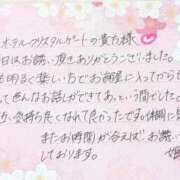 ホテルクリスタルゲートの貴方様
日はお誘い頂きありがとうございました。
も明るく楽しい方でお部屋に入ってからも
して色んなお話しができてあっという間でした。
い気持ち良くなれて良かったです。休憩に
またお時間が合えばお誘い
しております。